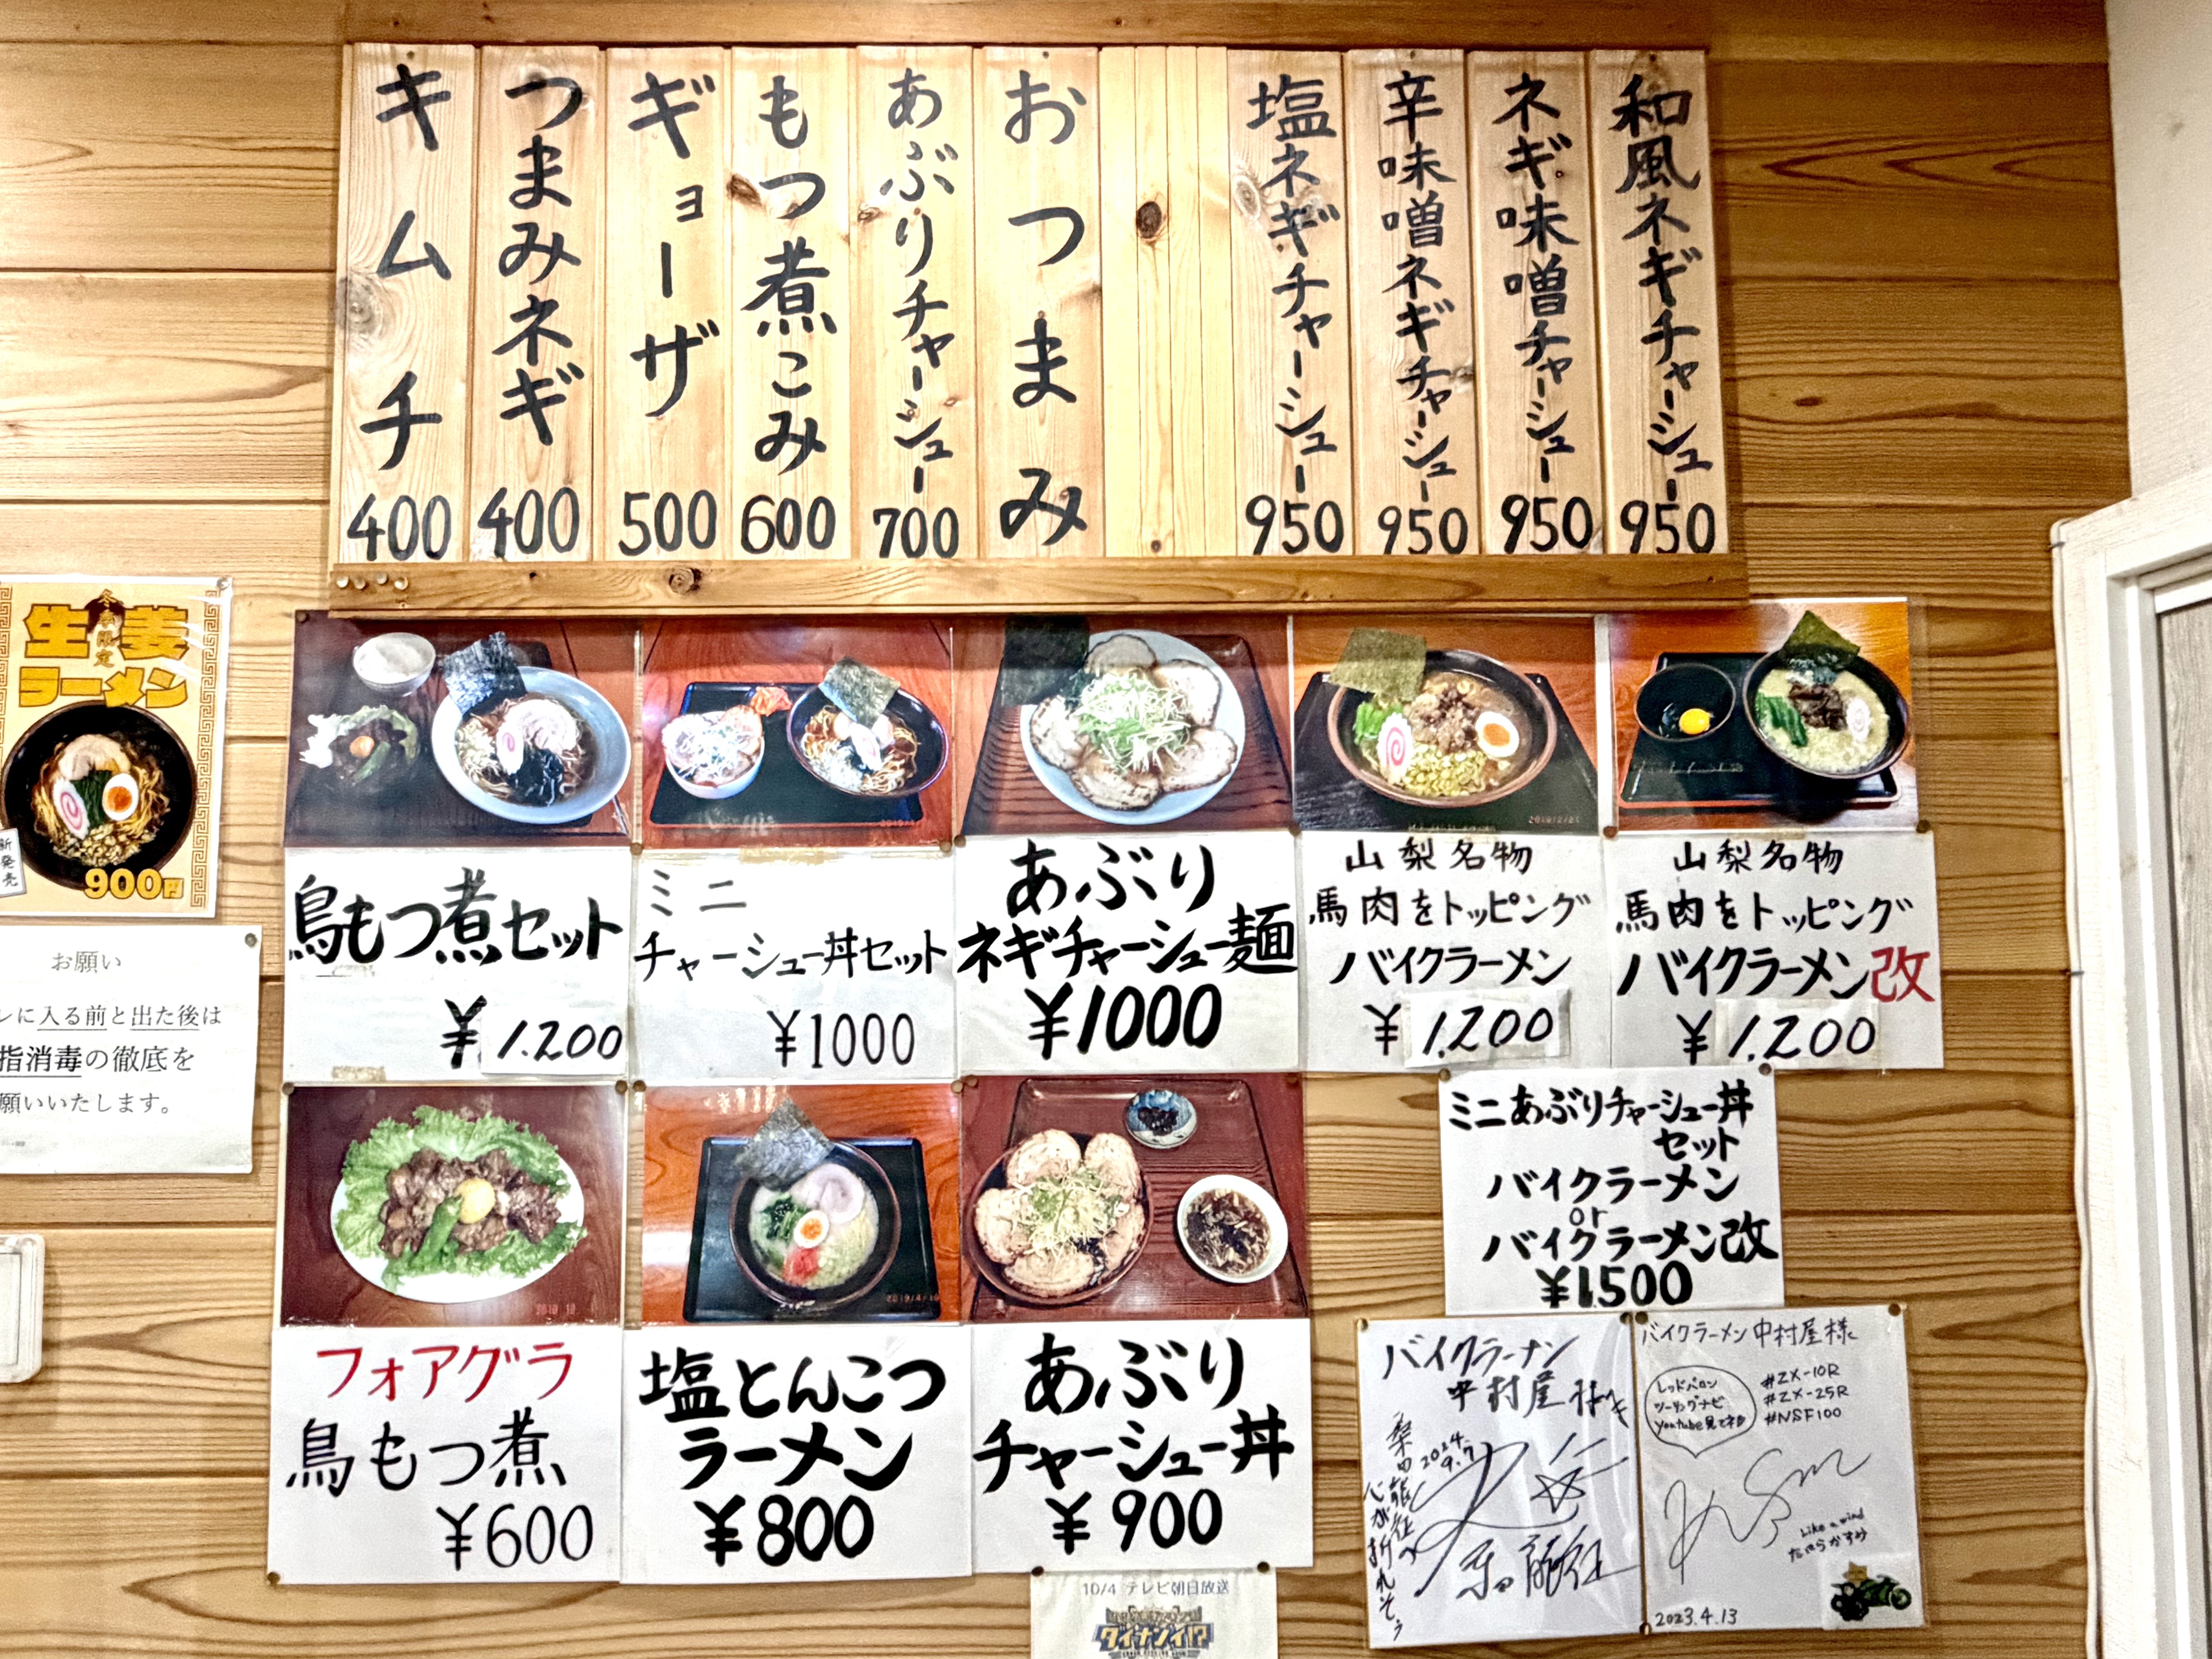 和風ネギチャーシュー 950
ネギ味噌チャーシュー 950
辛味噌ネギチャーシュー 950
塩ネギチャーシュー 950
おつまみ
あぶりチャーシュー 700
もつ煮こみ 600
ギョーザ 500
つまみネギ 400
キムチ 400
冬季限定
生姜
ラーメン
新発売
900円
お願い
レに入る前と出た後は
指消毒の徹底を
願いいたします。
鳥もつ煮セット
¥1.200
ミニ
チャーシュー丼セット
¥1000
あぶり
ネギチャーシュー麺
¥1000
山梨名物
馬肉をトッピング
バイクラーメン
¥1.200
山梨名物
馬肉をトッピング
バイクラーメン改
¥1.200
フォアグラ
鳥もつ煮
¥600
塩とんこつ
ラーメン
¥800
あぶり
チャーシュー丼
¥900
ミニあぶりチャーシュー丼
セット
バイクラーメン
or
バイクラーメン改
¥1500
バイクラーメン
中村屋
2024.
9.7
心が折れそう
バイクラーメン中村屋様
レッドバロン
ツーリングナビ
Youtube見てネ
#ZX-10R
#ZX-25R
#NSF100
Like a wind
2023.4.13
10/4 テレビ朝日放送